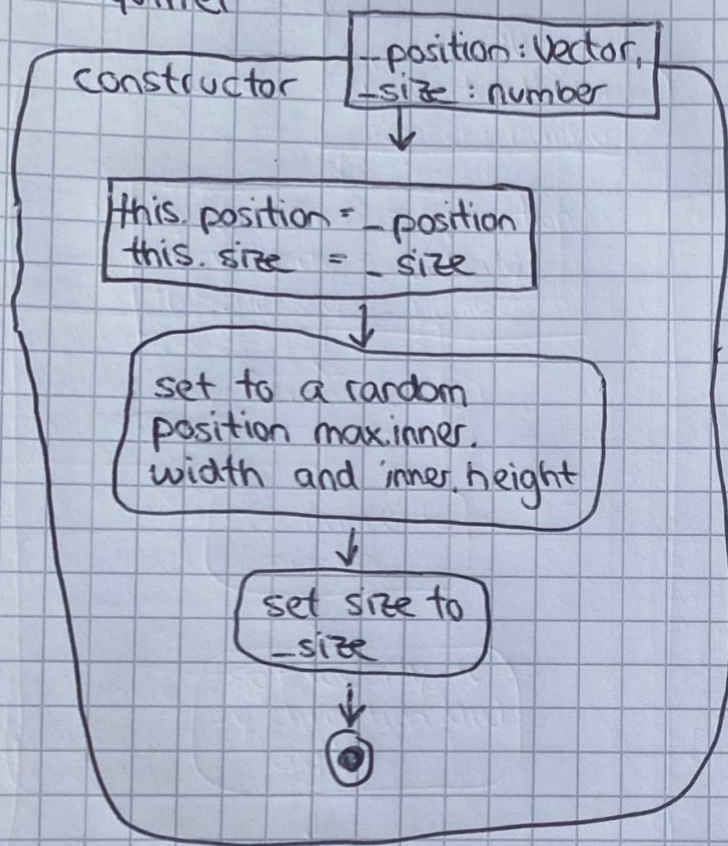 _position : Vector,
constructor
_size : number
this. position = _ position
this. size = _ size
set to a random
position max.inner.
width and inner. height
set size to
_size